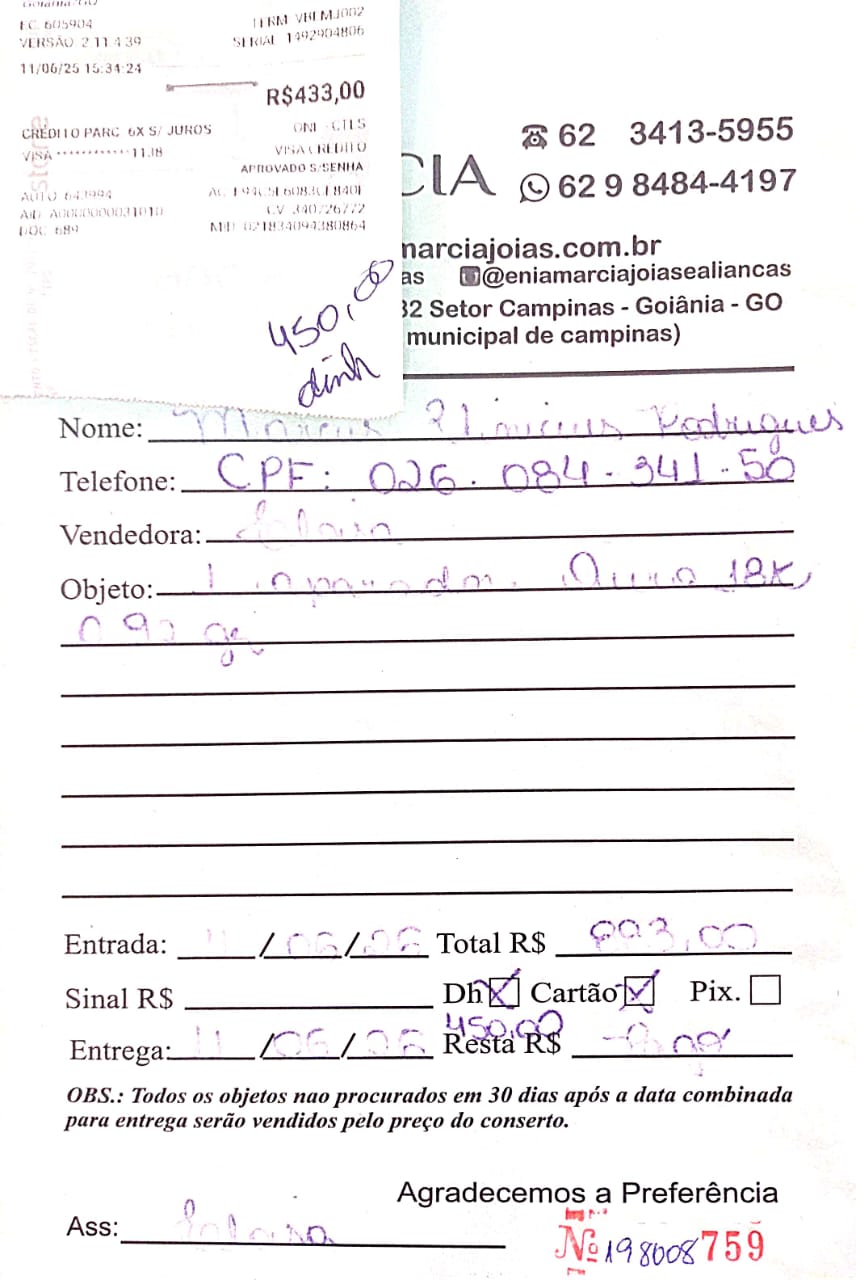 Goiânia/GO
EC 605904
TERM VBEMJ002
VERSÃO 2.11.4.39
SERIAL 1492904806
11/06/25 15:34:24
R$433,00
CRÉDITO PARC 6X S/ JUROS
VISA ************1138
VISA CREDITO
APROVADO S/SENHA
AUTO 643994
AID A0000000031010
CV 340726772
DOC 689
MID 021834094380864
450,00
dinh
CIA
62 3413-5955
62 9 8484-4197
marciajoias.com.br
as @eniamarciajoiasealiancas
32 Setor Campinas - Goiânia - GO
municipal de campinas)
Nome: Rodrigues
Telefone: CPF: 026.084-341-50
Vendedora:
Objeto: 1 aparador Ouro 18K
Entrada: Total R$ 883,00
Sinal R$ Dh Cartão Pix.
450,00
Entrega: Resta R$
OBS.: Todos os objetos nao procurados em 30 dias após a data combinada
para entrega serão vendidos pelo preço do conserto.
Agradecemos a Preferência
Ass:
Nº 198008759